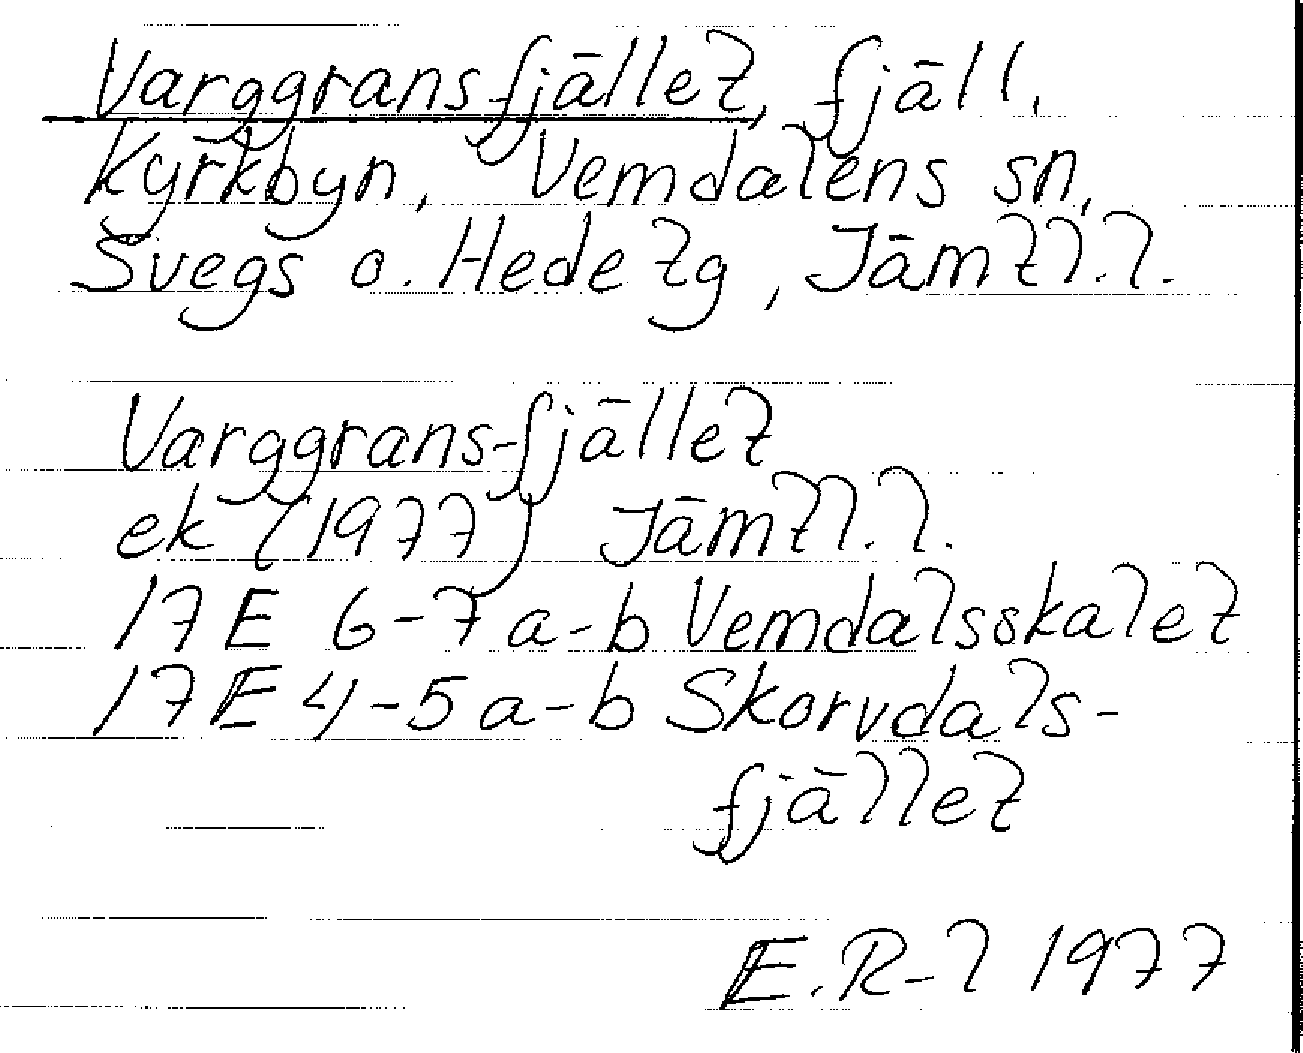 Varggransfjället, fjäll,
Kyrkbyn, Vemdalens sn,
Svegs o. Hede tg, Jämtl.l.
Varggrans-fjället
ek (1977) Jämtl.l.
17E 6-7a-b Vemdalsskalet
17E 4-5a-b Skorvdals-
fjället
E.R-l 1977